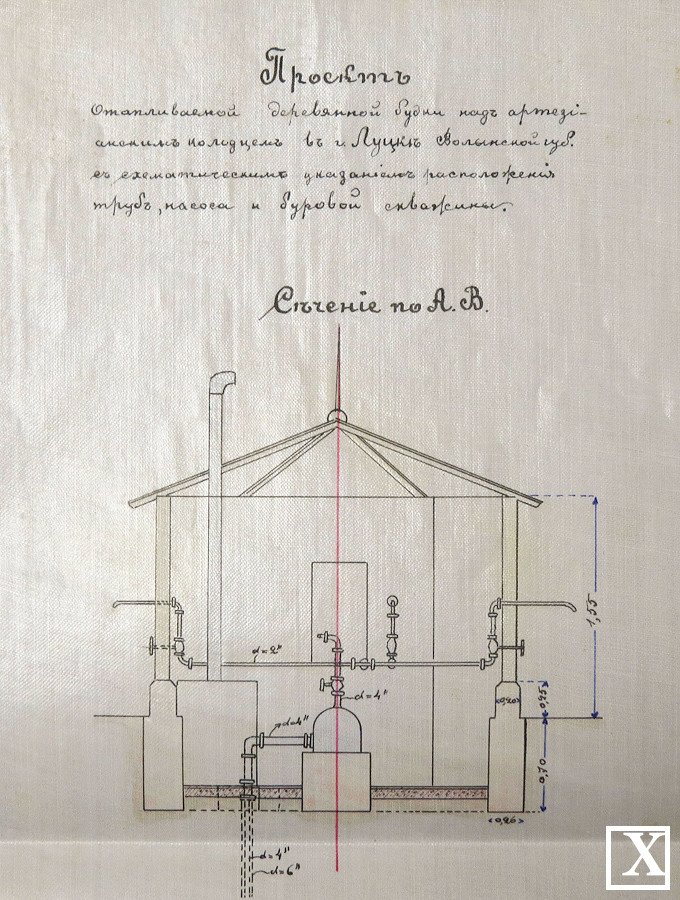 Проектъ
Отапливаемой деревянной будки надъ артезі-
анскимъ колодцемъ въ г. Луцкѣ Волынской губ.
съ схематическимъ указаніемъ расположенія
трубъ, насоса и буровой скважины.
Сѣченіе по А. В.
1,55
d=2"
d=4"
0,45
<0,20>
d=4"
0,70
<0,26>
d=4"
d=6"
X